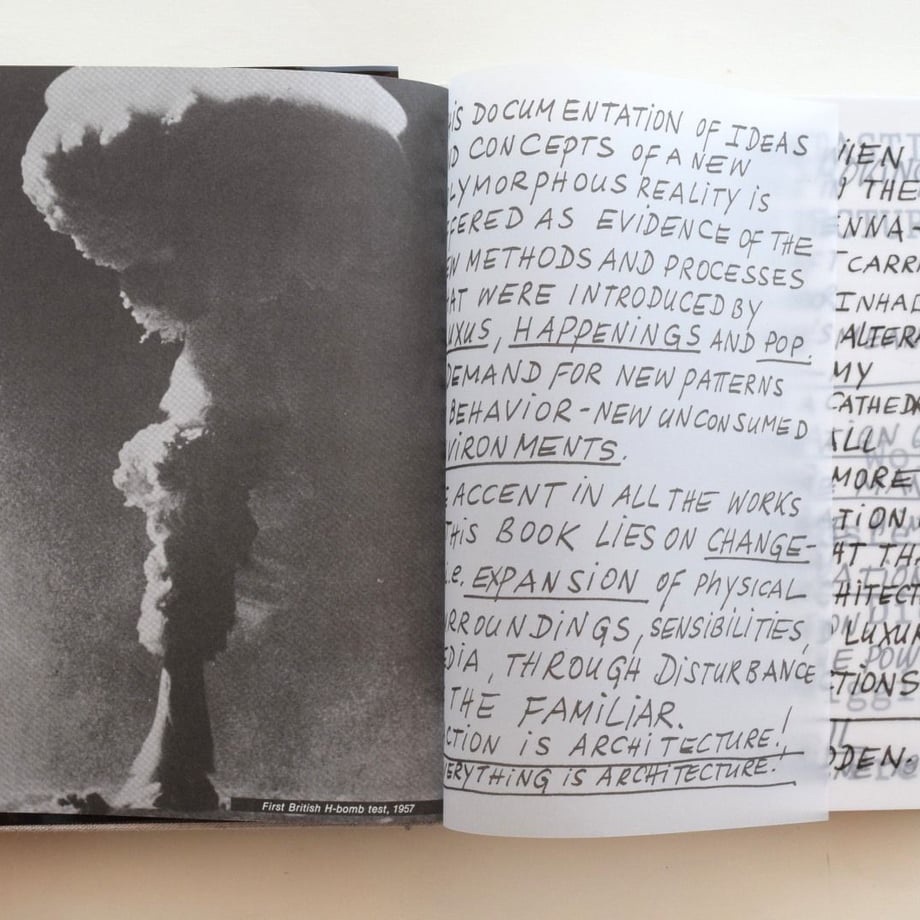 First British H-bomb test, 1957
IS DOCUMENTATION OF IDEAS
D CONCEPTS OF A NEW
LYMORPHOUS REALITY IS
FERED AS EVIDENCE OF THE
EW METHODS AND PROCESSES
HAT WERE INTRODUCED BY
UXUS, HAPPENINGS AND POP.
DEMAND FOR NEW PATTERNS
BEHAVIOR - NEW UNCONSUMED
VIRONMENTS.
E ACCENT IN ALL THE WORKS
THIS BOOK LIES ON CHANGE-
i.e. EXPANSION OF PHYSICAL
RROUNDINGS, SENSIBILITIES,
EDIA, THROUGH DISTURBANCE
THE FAMILIAR.
CTION IS ARCHITECTURE!
ERYTHING IS ARCHITECTURE!
HEN
THE
NNA-
CARRI
INHAL
ALTERA
MY
CATHED
ALL
MORE
TION
AT THA
HITECT
LUXUR
TIONS
DEN-